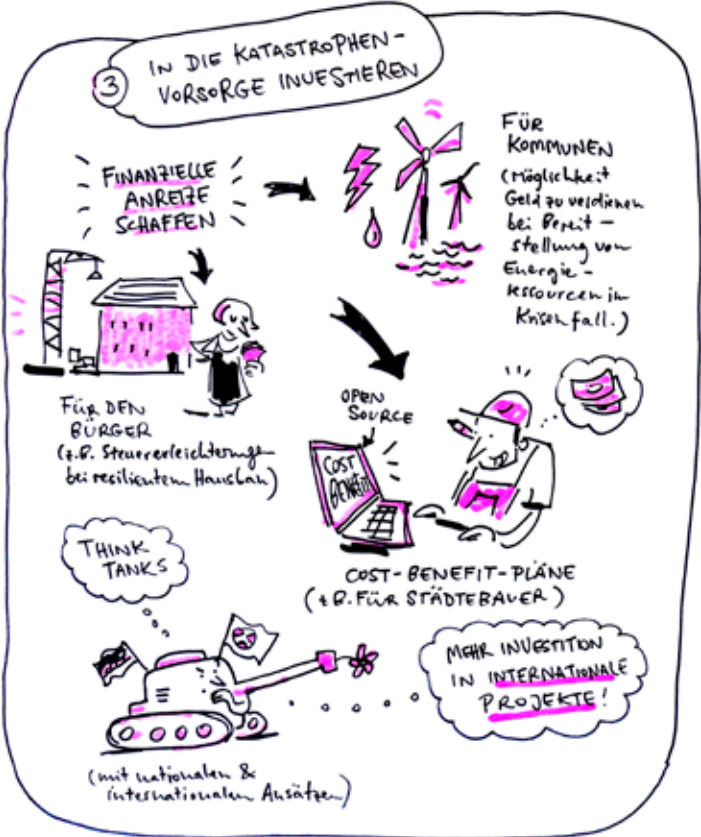 3
IN DIE KATASTROPHEN-
VORSORGE INVESTIEREN
FINANZIELLE
ANREIZE
SCHAFFEN
FÜR
KOMMUNEN
(Möglichkeit
Geld zu verdienen
bei Bereit-
stellung von
Energie-
ressourcen im
Krisenfall.)
FÜR DEN
BÜRGER
(z.B. Steuererleichterungen
bei resilientem Hausbau)
OPEN
SOURCE
COST
BENEFIT
COST-BENEFIT-PLÄNE
(z.B. FÜR STÄDTEBAUER)
THINK
TANKS
MEHR INVESTITION
IN INTERNATIONALE
PROJEKTE!
(mit nationalen &
internationalen Ansätzen)